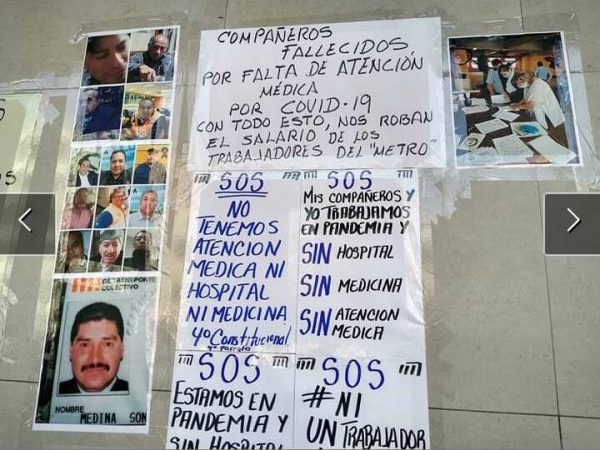 COMPAÑEROS
FALLECIDOS,
POR FALTA DE ATENCIÓN
MÉDICA
POR COVID-19
CON TODO ESTO, NOS ROBAN
EL SALARIO DE LOS
TRABAJADORES DEL "METRO"
SOS
NO
TENEMOS
ATENCION
MEDICA NI
HOSPITAL
NI MEDICINA
4º Constitucional
4º Parrafo
SOS
MIS COMPAÑEROS Y
YO TRABAJAMOS
EN PANDEMIA Y
SIN HOSPITAL
SIN MEDICINA
SIN ATENCION
MEDICA
SOS
ESTAMOS EN
PANDEMIA Y
SIN HOSPITAL
SOS
#NI
UN TRABAJADOR
COLECTIVO
NOMBRE
MEDINA
S
OS